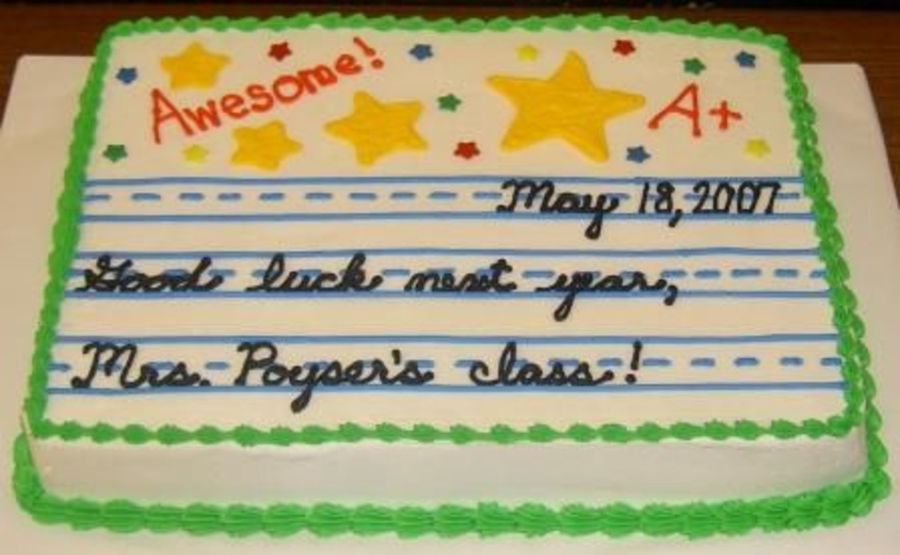 Awesome!
A+
May 18, 2007
Good luck next year,
Mrs. Poyser's class!